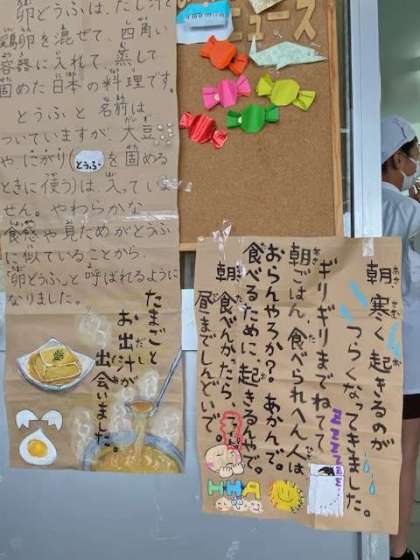 ニュース
卵どうふは、だし汁と
鶏卵を混ぜて、四角い
容器に入れて、蒸して
固めた日本の料理です。
とうふと名前は
ついていますが、大豆
やにがり(とうふを固める
ときに使う)は、入っていま
せん。やわらかな
食感や見ためがとうふ
に似ていることから、
「卵どうふ」と呼ばれるように
なりました。
たまごと
お出汁が
出会いました。
朝、寒く起きるのが
つらくなってきました。
ギリギリまでねてて、
zzzzz
朝ごはん、食べられへん人は
おらんやろか?あかんで。
食べるために起きるんやで。
朝、食べんかったら、
昼までしんどいで。